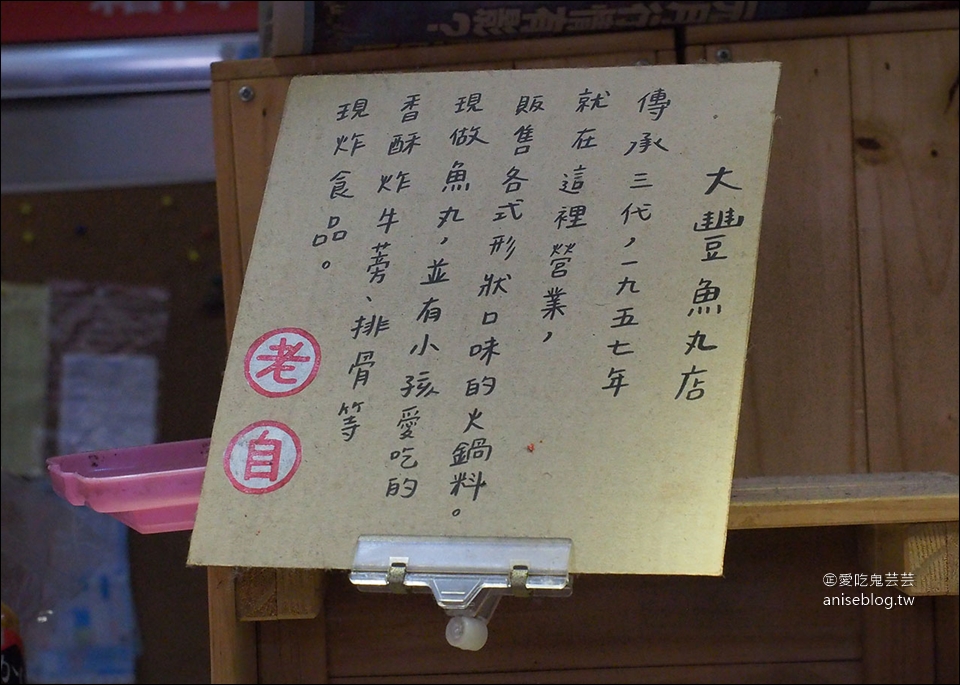 大豐魚丸店
傳承三代，一九五七年
就在這裡營業，
販售各式形狀口味的火鍋料。
現做魚丸，並有小孩愛吃的
香酥炸牛蒡、排骨等
現炸食品。
老
自
愛吃鬼芸芸
aniseblog.tw